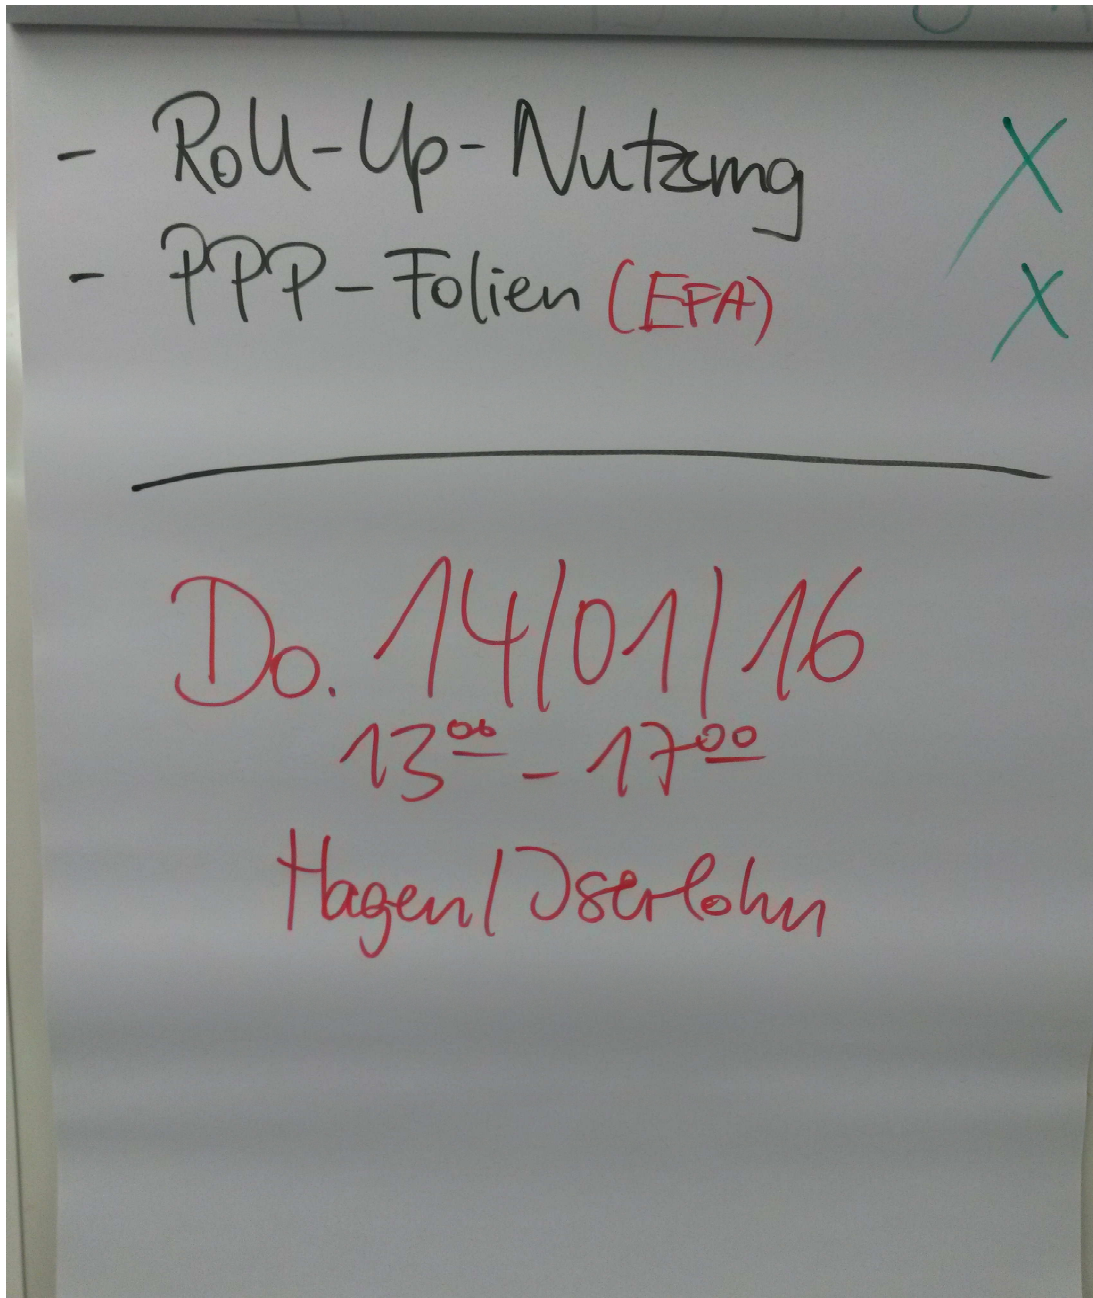 - Roll-Up-Nutzung X
- PPP-Folien (EFA) X
Do. 14/01/16
13⁰⁰ - 17⁰⁰
Hagen/Iserlohn